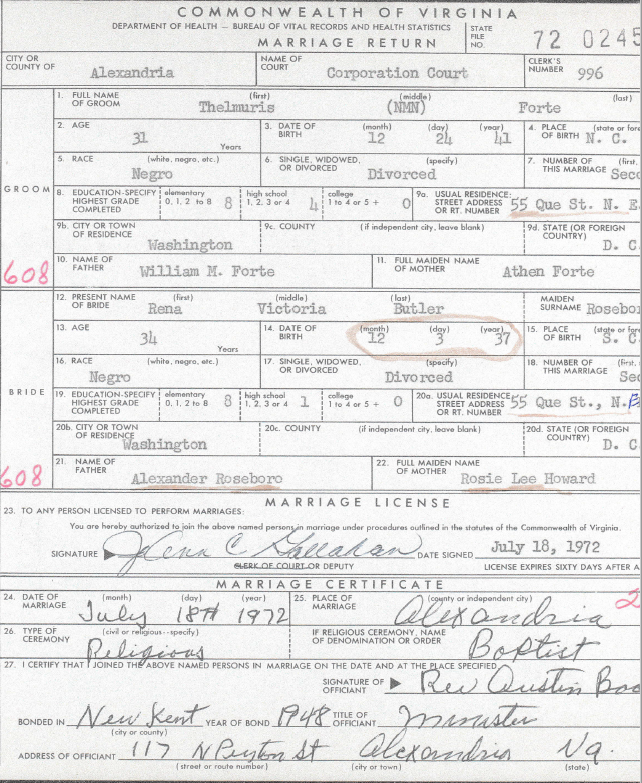 COMMONWEALTH OF VIRGINIA
DEPARTMENT OF HEALTH — BUREAU OF VITAL RECORDS AND HEALTH STATISTICS
MARRIAGE RETURN
STATE FILE NO. 72 0245
CITY OR COUNTY OF Alexandria NAME OF COURT Corporation Court CLERK'S NUMBER 996
GROOM
1. FULL NAME OF GROOM (first) Thelmuris (middle) (NMN) (last) Forte
2. AGE 31 Years 3. DATE OF BIRTH (month) 12 (day) 24 (year) 41 4. PLACE OF BIRTH (state or fore N. C.
5. RACE (white, negro, etc.) Negro 6. SINGLE, WIDOWED, OR DIVORCED (specify) Divorced 7. NUMBER OF THIS MARRIAGE (first, Seco
8. EDUCATION-SPECIFY HIGHEST GRADE COMPLETED elementary 0, 1, 2 to 8 8 high school 1, 2, 3 or 4 4 college 1 to 4 or 5 + 0 9a. USUAL RESIDENCE: STREET ADDRESS OR RT. NUMBER 55 Que St. N. E.
9b. CITY OR TOWN OF RESIDENCE Washington 9c. COUNTY (if independent city, leave blank) 9d. STATE (OR FOREIGN COUNTRY) D. C.
608
10. NAME OF FATHER William M. Forte 11. FULL MAIDEN NAME OF MOTHER Athen Forte
BRIDE
12. PRESENT NAME OF BRIDE (first) Rena (middle) Victoria (last) Butler MAIDEN SURNAME Rosebor
13. AGE 34 Years 14. DATE OF BIRTH (month) 12 (day) 3 (year) 37 15. PLACE OF BIRTH (state or fore S. C.
16. RACE (white, negro, etc.) Negro 17. SINGLE, WIDOWED, OR DIVORCED (specify) Divorced 18. NUMBER OF THIS MARRIAGE (first, Sec
19. EDUCATION-SPECIFY HIGHEST GRADE COMPLETED elementary 0, 1, 2 to 8 8 high school 1, 2, 3 or 4 1 college 1 to 4 or 5 + 0 20a. USUAL RESIDENCE: STREET ADDRESS OR RT. NUMBER 55 Que St., N.E
20b. CITY OR TOWN OF RESIDENCE Washington 20c. COUNTY (if independent city, leave blank) 20d. STATE (OR FOREIGN COUNTRY) D. C
608
21. NAME OF FATHER Alexander Roseboro 22. FULL MAIDEN NAME OF MOTHER Rosie Lee Howard
MARRIAGE LICENSE
23. TO ANY PERSON LICENSED TO PERFORM MARRIAGES:
You are hereby authorized to join the above named persons in marriage under procedures outlined in the statutes of the Commonwealth of Virginia.
SIGNATURE C Gallahan DATE SIGNED July 18, 1972
CLERK OF COURT OR DEPUTY LICENSE EXPIRES SIXTY DAYS AFTER A
MARRIAGE CERTIFICATE
24. DATE OF MARRIAGE (month) July (day) 18th (year) 1972 25. PLACE OF MARRIAGE (county or independent city) Alexandria 2
26. TYPE OF CEREMONY (civil or religious--specify) Religious IF RELIGIOUS CEREMONY, NAME OF DENOMINATION OR ORDER Baptist
27. I CERTIFY THAT I JOINED THE ABOVE NAMED PERSONS IN MARRIAGE ON THE DATE AND AT THE PLACE SPECIFIED.
SIGNATURE OF OFFICIANT Rev Austin Boo
BONDED IN New Kent (city or county) YEAR OF BOND 1948 TITLE OF OFFICIANT Minister
ADDRESS OF OFFICIANT 117 N Peyton St (street or route number) Alexandria (city or town) Va. (state)